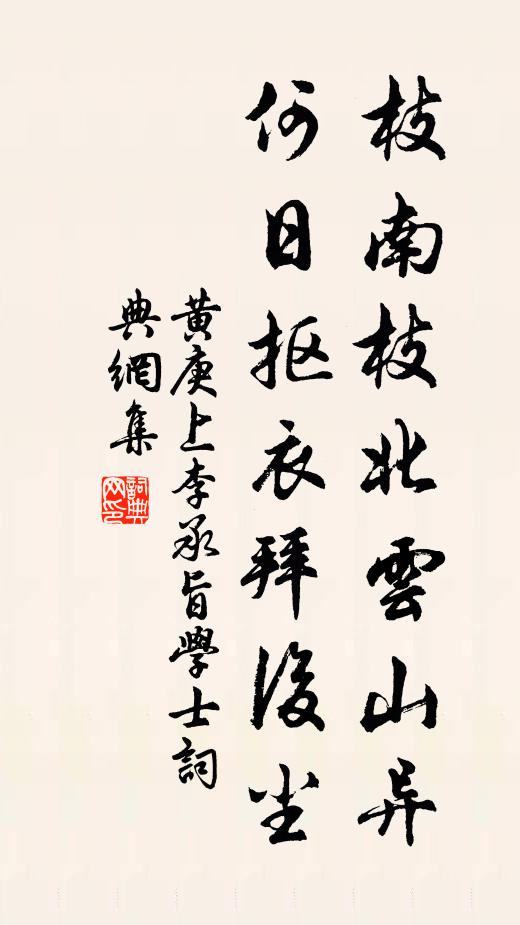 枝南枝北雲山异
何日抠衣拜後尘
黄庚上李承旨學士詞
典網集
詞典网印